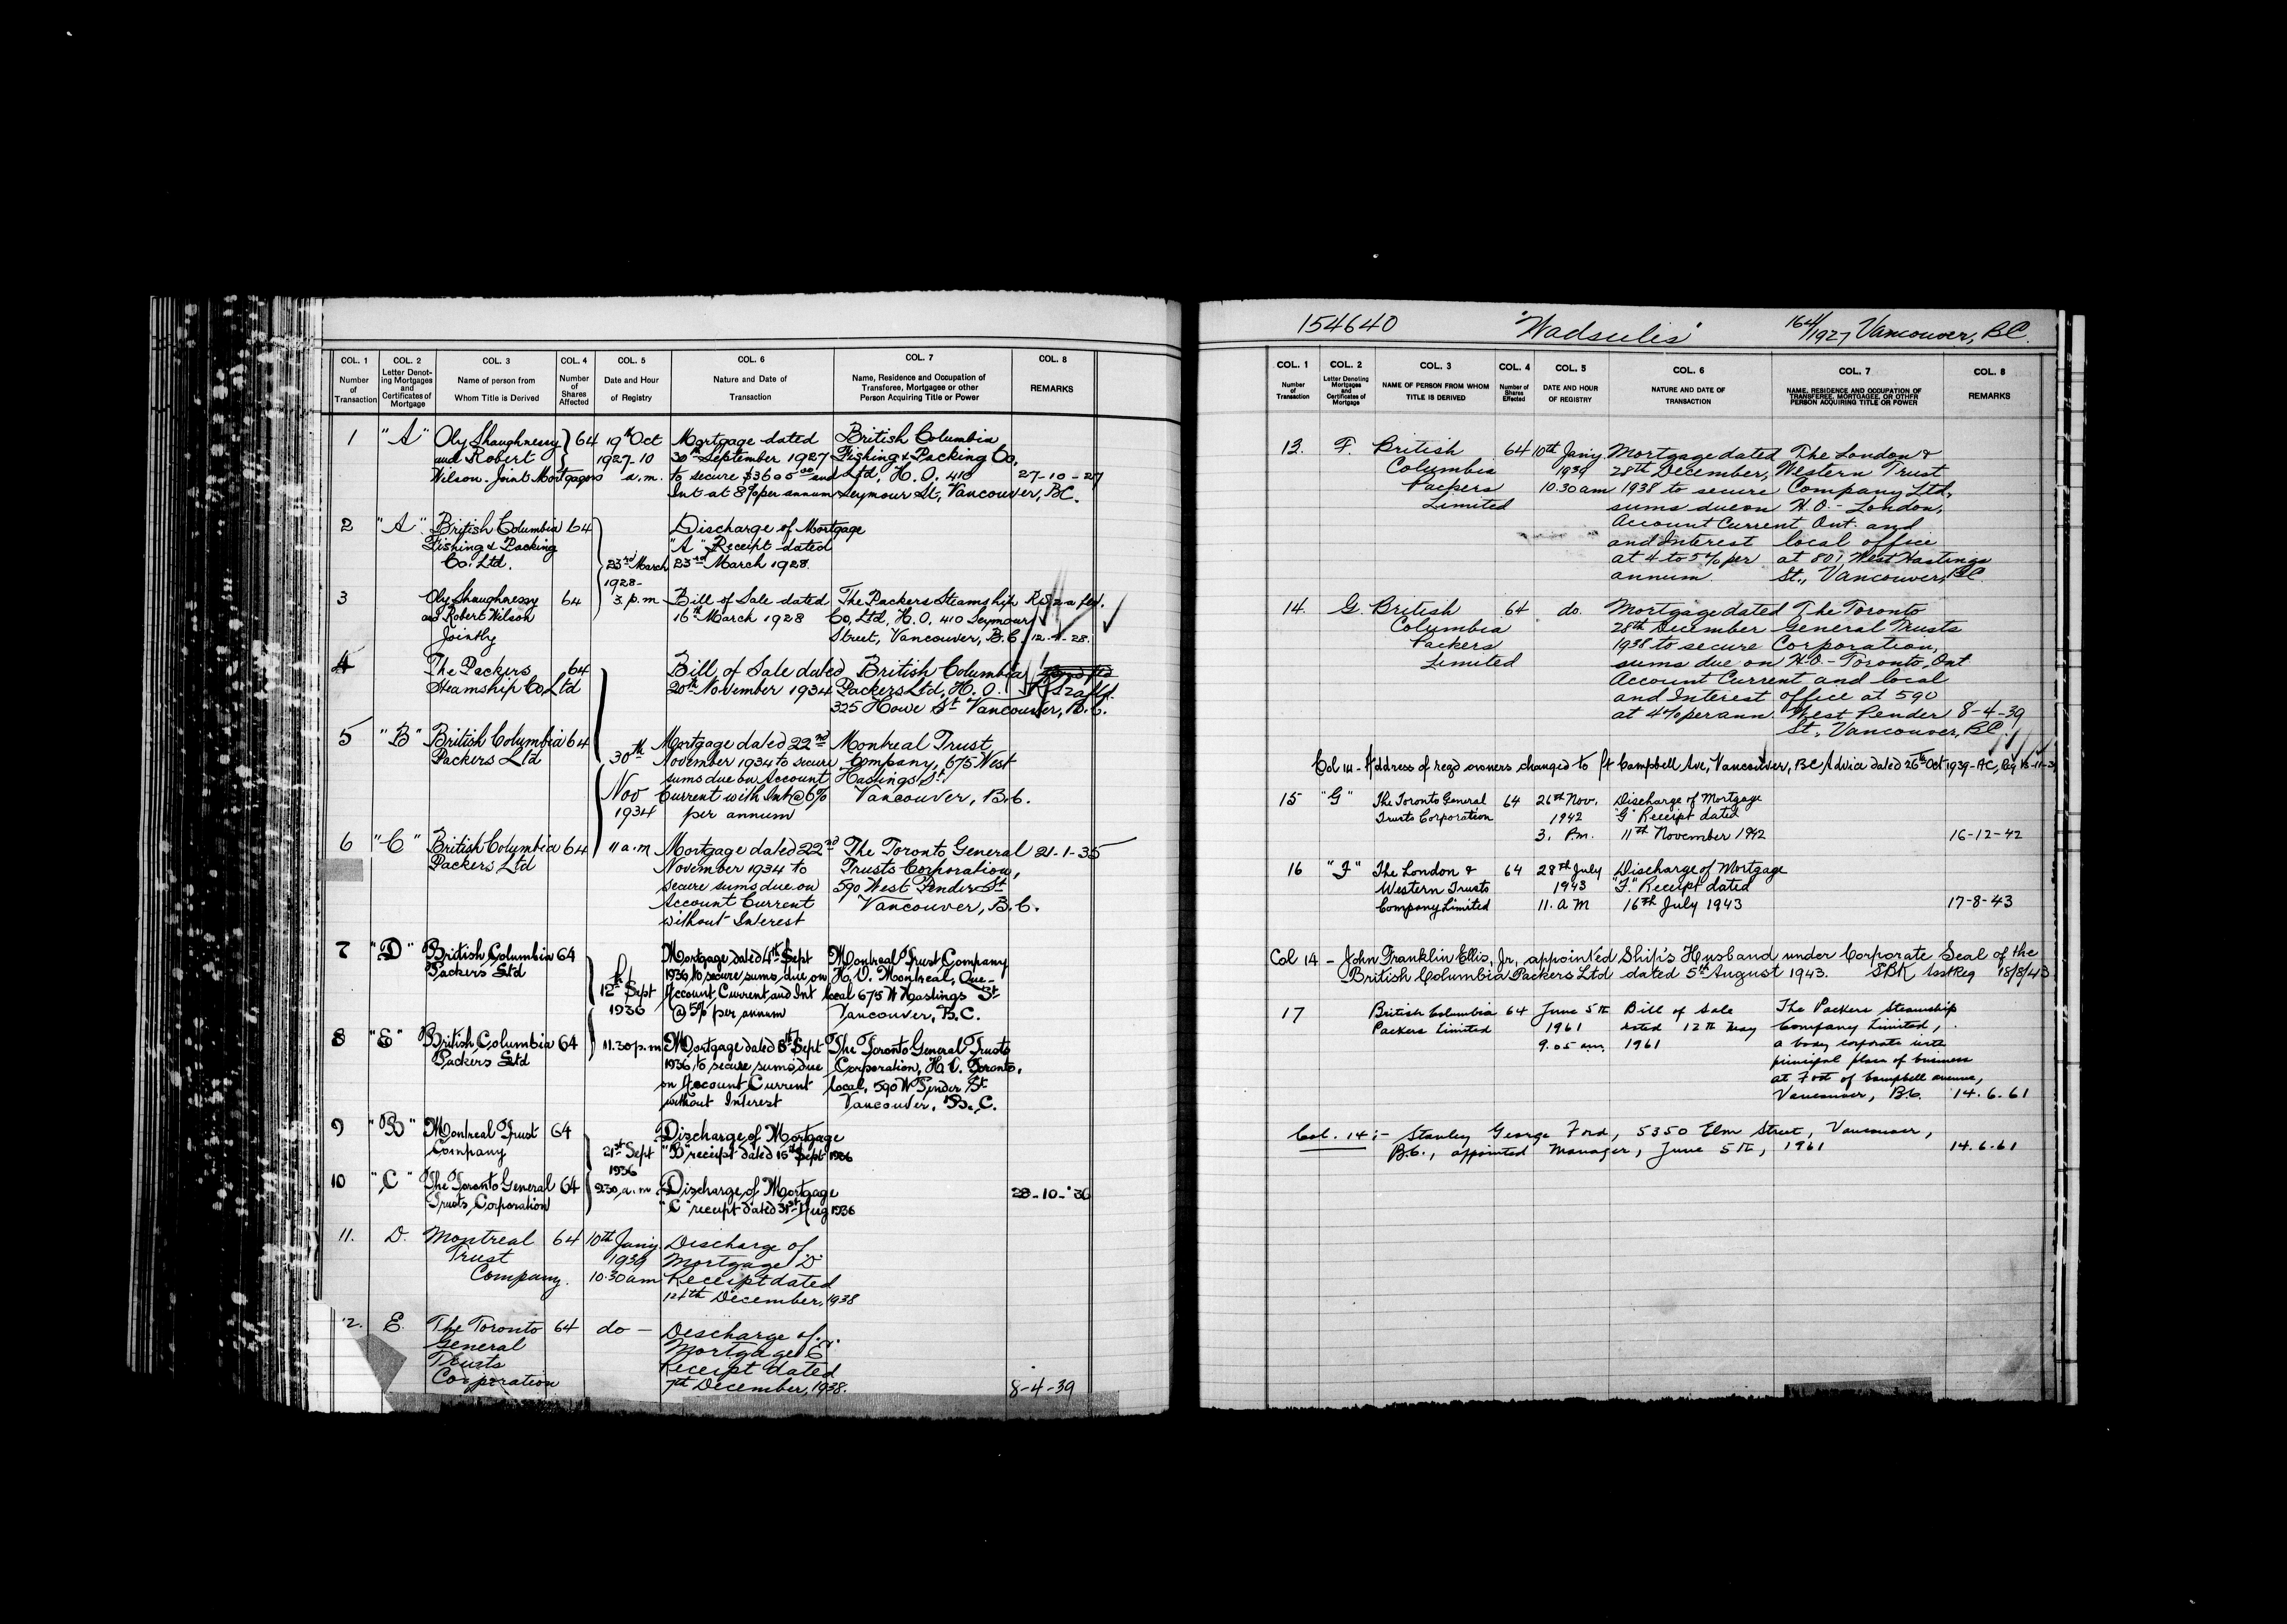 COL. 1 COL. 2 COL. 3 COL. 4 COL. 5 COL. 6 COL. 7 COL. 8
Number of Transaction
Letter Denoting Mortgages and Certificates of Mortgage
Name of person from Whom Title is Derived
Number of Shares Affected
Date and Hour of Registry
Nature and Date of Transaction
Name, Residence and Occupation of Transferee, Mortgagee or other Person Acquiring Title or Power
REMARKS
1 "A" Oly Shaughnessy } 64 19th Oct Mortgage dated British Columbia
and Robert 1927-10 30th September 1927 Fishing & Packing Co,
Wilson. Joint Mortgagors a.m. to secure $3600.00 and Ltd, H.O. 410 27-10-27
Int at 8% per annum Seymour St, Vancouver, BC.
2 "A" British Columbia 64 Discharge of Mortgage
Fishing & Packing "A" Receipt dated
Co. Ltd. 23rd March 23rd March 1928.
1928-
3 Oly Shaughnessy 64 3. p.m Bill of Sale dated The Packers Steamship
and Robert Wilson 16th March 1928 Co, Ltd, H.O. 410 Seymour
Jointly Street, Vancouver, B.C. 12-4-28.
4 The Packers 64 Bill of Sale dated British Columbia
Steamship Co, Ltd 20th November 1934 Packers Ltd, H.O.
325 Howe St Vancouver, B.C.
5 "B" British Columbia 64 Mortgage dated 22nd Montreal Trust
Packers Ltd 30th November 1934 to secure Company, 675 West
sums due on Account Hastings St.
Nov Current with Int @ 6% Vancouver, B.C.
1934 per annum
6 "C" British Columbia 64 11 a.m Mortgage dated 22nd The Toronto General 21-1-35
Packers Ltd November 1934 to Trusts Corporation,
secure sums due on 590 West Pender St
Account Current Vancouver, B.C.
without Interest
7 "D" British Columbia 64 Mortgage dated 4th Sept Montreal Trust Company
Packers Ltd 1936, to secure sums due on H.O. Montreal, Que-
12th Sept Account Current, and Int local 675 W Hastings St
1936 @ 5% per annum Vancouver, B.C.
8 "E" British Columbia 64 11.30 p.m Mortgage dated 8th Sept The Toronto General Trusts
Packers Ltd 1936, to secure sums due Corporation, H.O. Toronto,
on Account Current local, 590 W Pender St
without Interest Vancouver, B.C.
9 "B" Montreal Trust 64 Discharge of Mortgage
Company 21st Sept "B" receipt dated 15th Sept 1936
1936
10 "C" The Toronto General 64 9.30, a.m. Discharge of Mortgage 28-10-'36
Trusts, Corporation "C" receipt dated 31st Aug 1936
11. D. Montreal 64 10th Jany. Discharge of
Trust 1939 Mortgage "D"
Company. 10.30 am Receipt dated
December, 1938
12. E. The Toronto 64 do - Discharge of
General Mortgage "E".
Trusts Receipt dated
Corporation 7th December, 1938. 8-4-39
154640 "Wadsulis" 164/1927 Vancouver, BC.
COL. 1 COL. 2 COL. 3 COL. 4 COL. 5 COL. 6 COL. 7 COL. 8
Number of Transaction
Letter Denoting Mortgages and Certificates of Mortgage
NAME OF PERSON FROM WHOM TITLE IS DERIVED
Number of Shares Effected
DATE AND HOUR OF REGISTRY
NATURE AND DATE OF TRANSACTION
NAME, RESIDENCE AND OCCUPATION OF TRANSFEREE, MORTGAGEE, OR OTHER PERSON ACQUIRING TITLE OR POWER
REMARKS
13. F. British 64 10th Jany. Mortgage dated The London &
Columbia 1939 28th December, Western Trust
Packers 10.30 am 1938 to secure Company Ltd,
Limited sums due on H.O. - London,
Account Current Ont. and
and Interest local office
at 4 to 5% per at 801 West Hastings
annum. St., Vancouver, BC.
14. G. British 64 do. Mortgage dated The Toronto
Columbia 28th December General Trusts
Packers 1938 to secure Corporation,
Limited sums due on H.O. - Toronto, Ont
Account Current and local
and Interest office at 590
at 4% per ann. West Pender 8-4-39
St, Vancouver, BC.
Col 14 - Address of regd owners changed to ft Campbell Ave, Vancouver, BC Advice dated 26th Oct 1939 - AC, Reg
15 "G" The Toronto General 64 26th Nov. Discharge of Mortgage
Trusts Corporation 1942 "G" Receipt dated
3. P.m. 11th November 1942 16-12-42
16 "F" The London & 64 28th July Discharge of Mortgage
Western Trusts 1943 "F." Receipt dated
Company Limited 11. A M 16th July 1943 17-8-43
Col 14 - John Franklin Ellis, Jr, appointed Ship's Husband under Corporate Seal of the
British Columbia Packers Ltd dated 5th August 1943. SBK Asst Reg 18/8/43
17 British Columbia 64 June 5th Bill of Sale The Packers Steamship
Packers Limited 1961 dated 12th May Company Limited,
9.05 am. 1961 a body corporate with
principal place of business
at Foot of Campbell avenue,
Vancouver, B.C. 14.6.61
Col. 14:- Stanley George Ford, 5350 Elm Street, Vancouver,
B.C., appointed Manager, June 5th, 1961 14.6.61